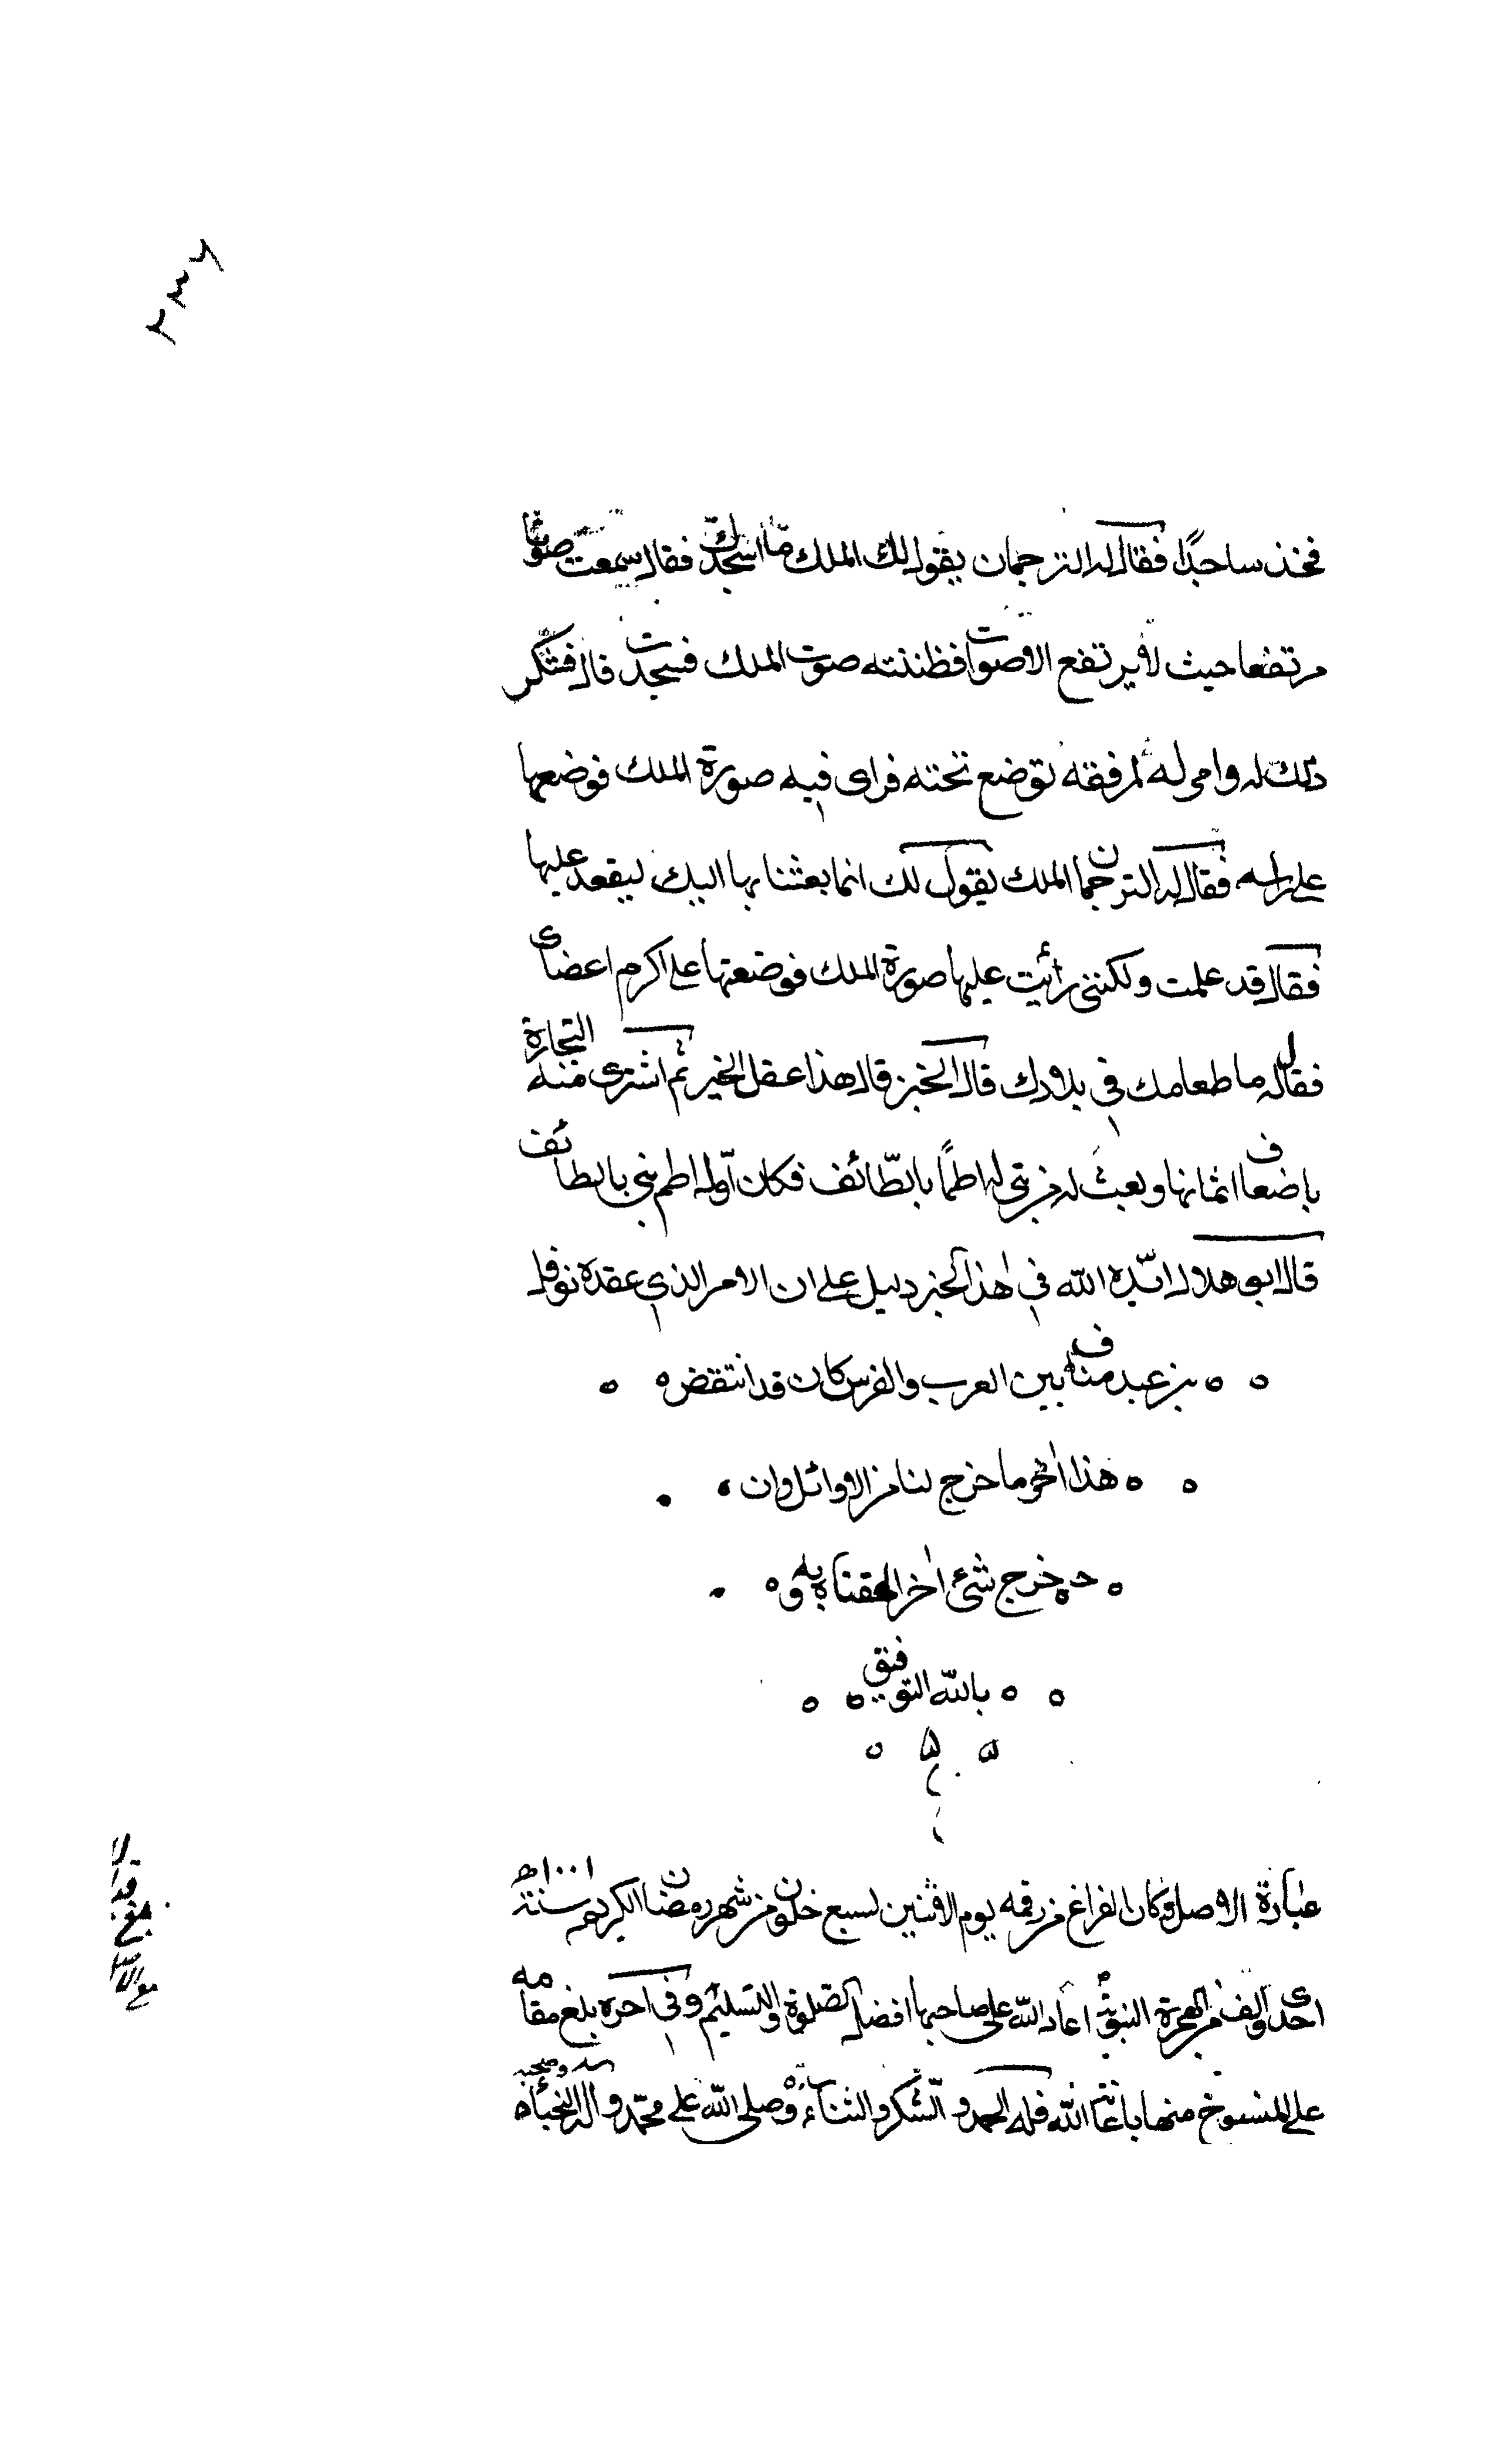 ٢٣٦
فخذ ساجدًا فقال له الترجمان يقول لك الملك ما اسجدك فقال سمعت صوتا
مرتفعا حيث لا يرتفع الاصوات فظننته صوت الملك فسجدت قال فشكر
ذلك له وامر له بمرفقه توضع تحته فراى فيه صورة الملك فوضعها
على راسه فقال له الترجمان الملك يقول لك انما بعثنا بها اليك ليقعد عليها
فقال قد علمت ولكننى رأيت عليها صورة الملك فوضعتها على اكرم اعضاى
فقال له ما طعامك في بلادك قال الخبز قال هذا عقل الخبز ثم اشترى منه التجارة
باضعاف اثمانها وبعث له من بنى له اطمًا بالطّائف فكان اوّل اطم بنى بالطائف
قال ابو هلال ايّده الله في هذا الخبر دليل على ان الامر الذي عقده نوفل
بن عبد مناف بين العرب والفرس كان قد انتقض
هذا اخر ما خرج لنا من الاوائل وان
خرج شئ اخر الحقناه به و
بالله التوفيق
عبارة الاصل وكان الفراغ من رقمه يوم الاثنين لسبع خلون من شهر رمضان الكريم سنة ١٠٠١ه
احدى والف من الهجرة النبوية اعاد الله على صاحبها افضل الصلوة والتسليم وفى اخره بلغ مقامه
على المنسوخ منها باعانة الله فله الحمد والشكر والثناء وصلى الله على محمّد واله وصحبه